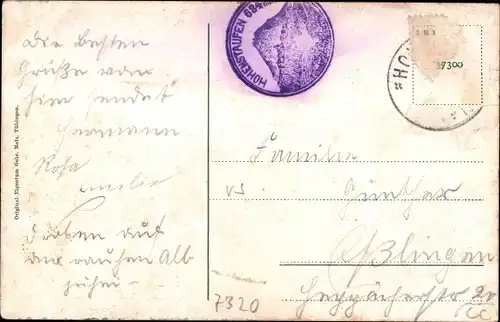 Die besten
Grüße von
hier sendet
Hermann
Rosa
Emilie
Droben auf
der rauhen Alb
Original-Eigentum Gebr. Metz, Tübingen.
HOHENSTAUFEN 684
HO
181
37300
Familie
Günther
Eßlingen
20
7320